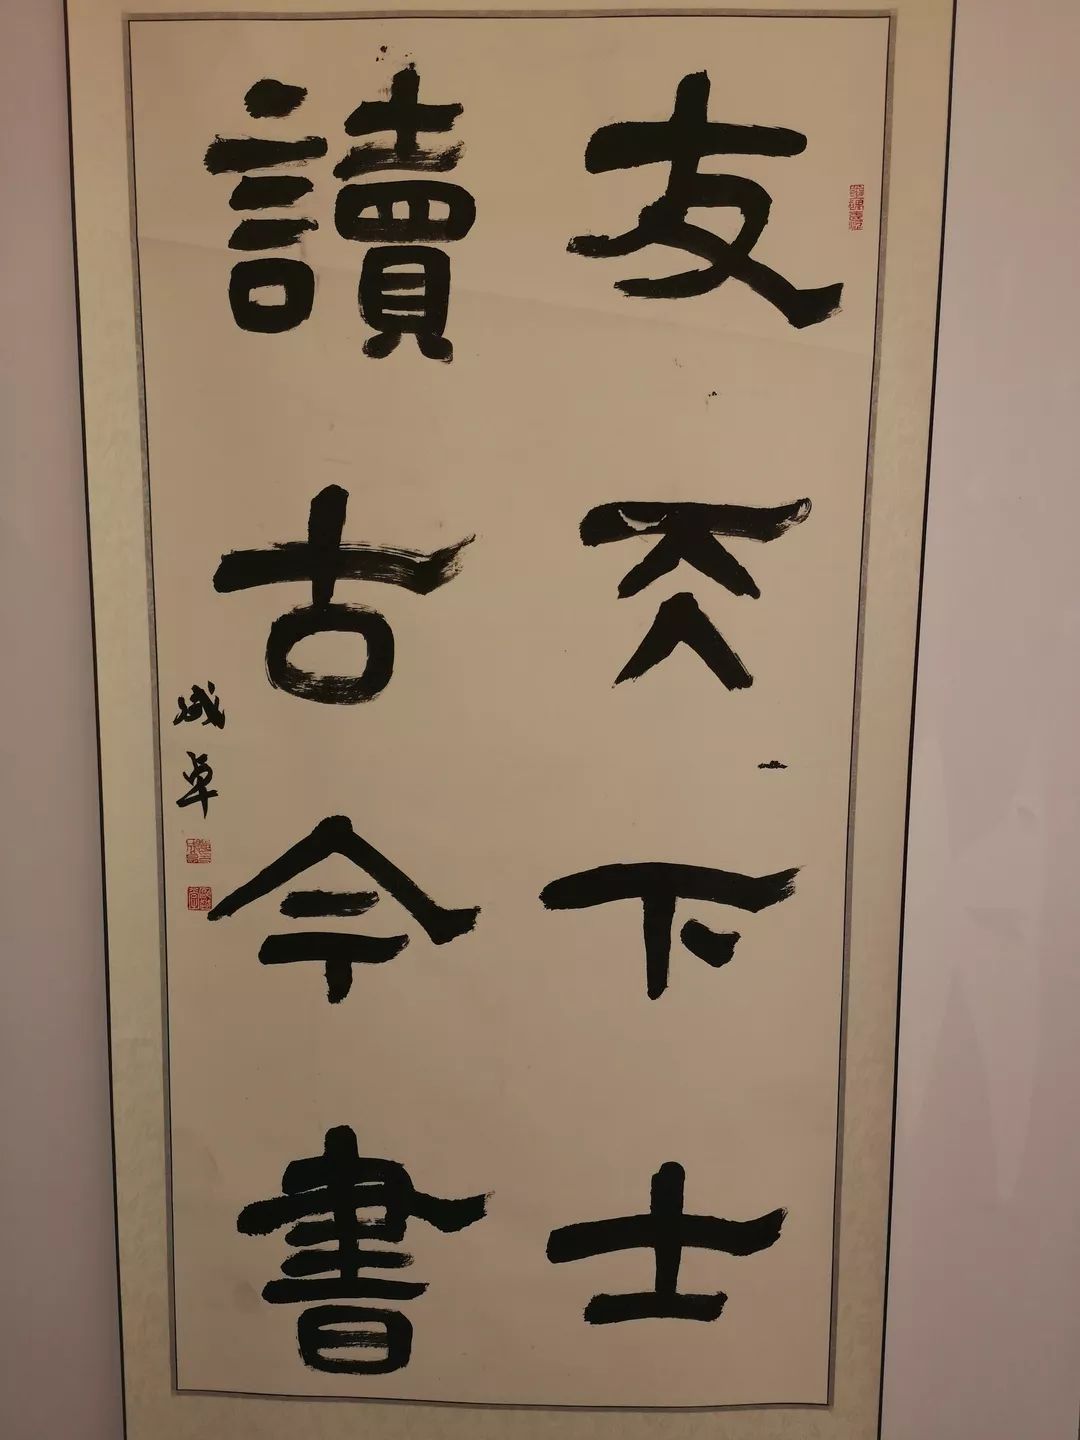 友天下士
讀古今書
成卓